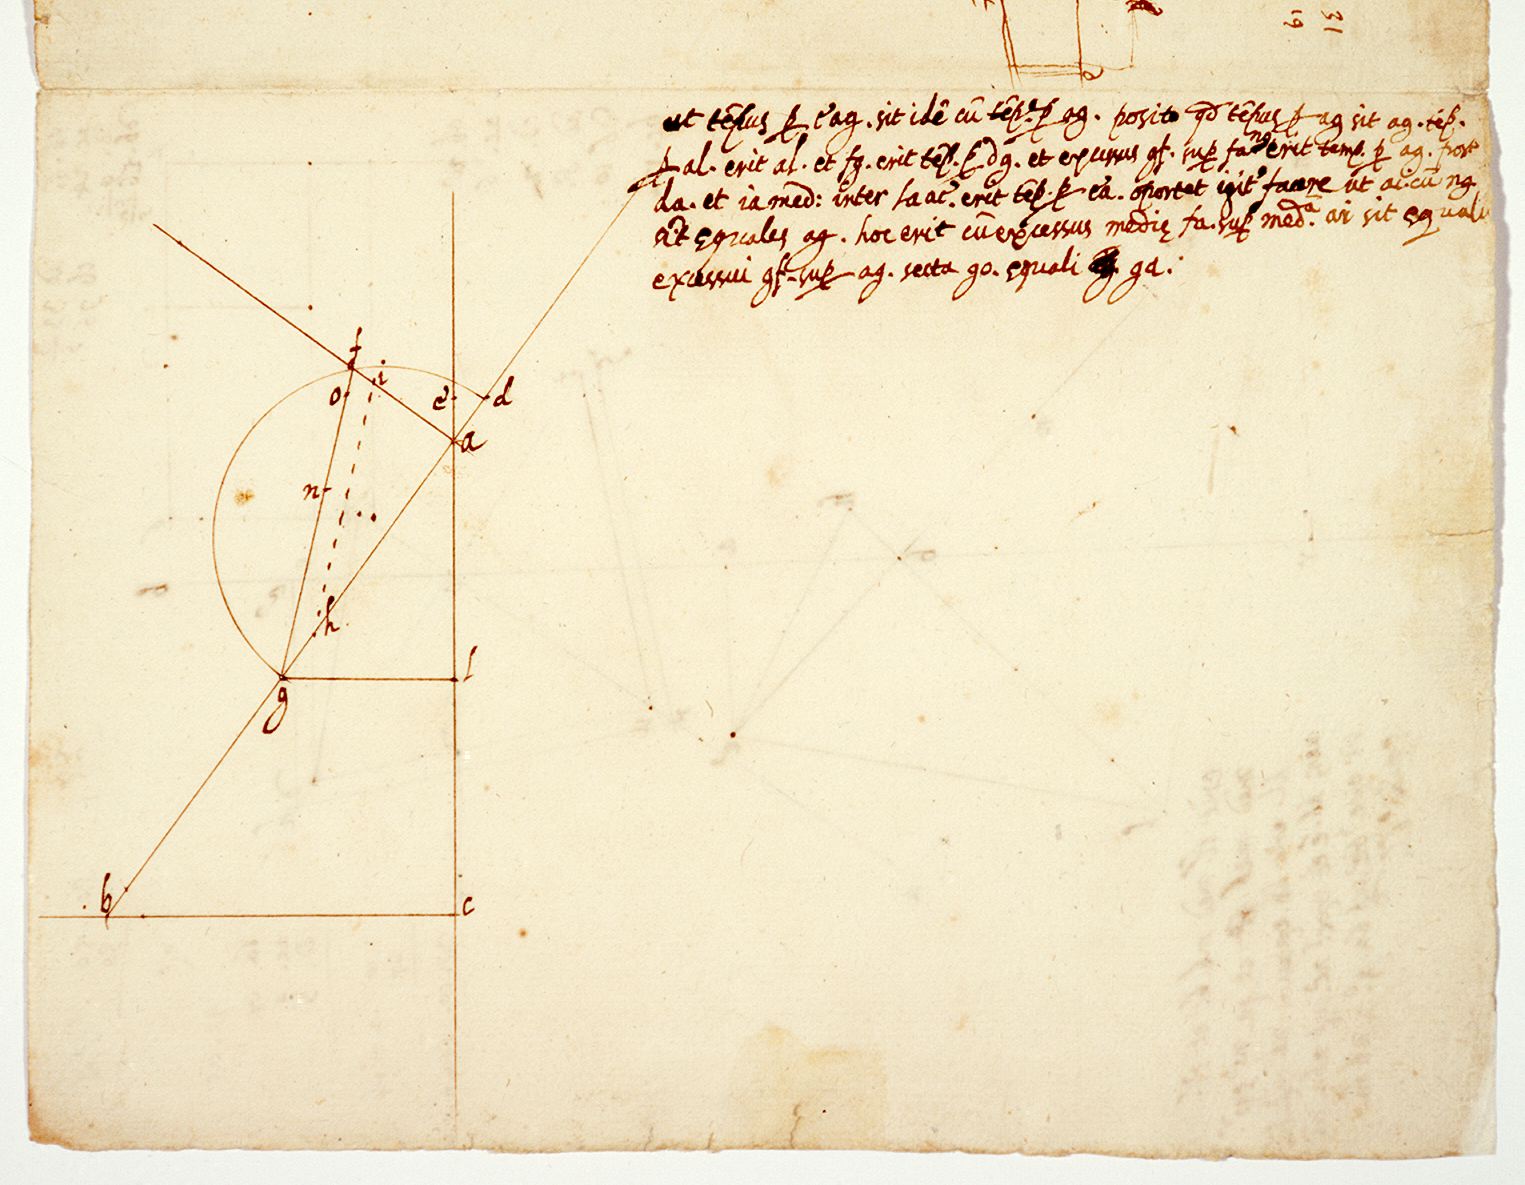 ut tēpus ꝑ eag. sit idē cū tēp.e ꝑ ag. posito qd tēpus ꝑ ag sit ag. tēp.
ꝑ al. erit al. et fg. erit tēp. ꝑ dg. et excessus gf. sup fa ng erit temp. ꝑ ag. post
da. et ia med: inter la ac erit tēp. ꝑ ea. oportet igit facere ut ai. cū ng
sit ęquales ag. hoc erit cū excessus medię fa. sup med.a ai sit ęquali
excessui gf. sup ag. secta go. ęquali ga.
f
o
i
e
d
a
n
h
g
l
b
c
a
19
31